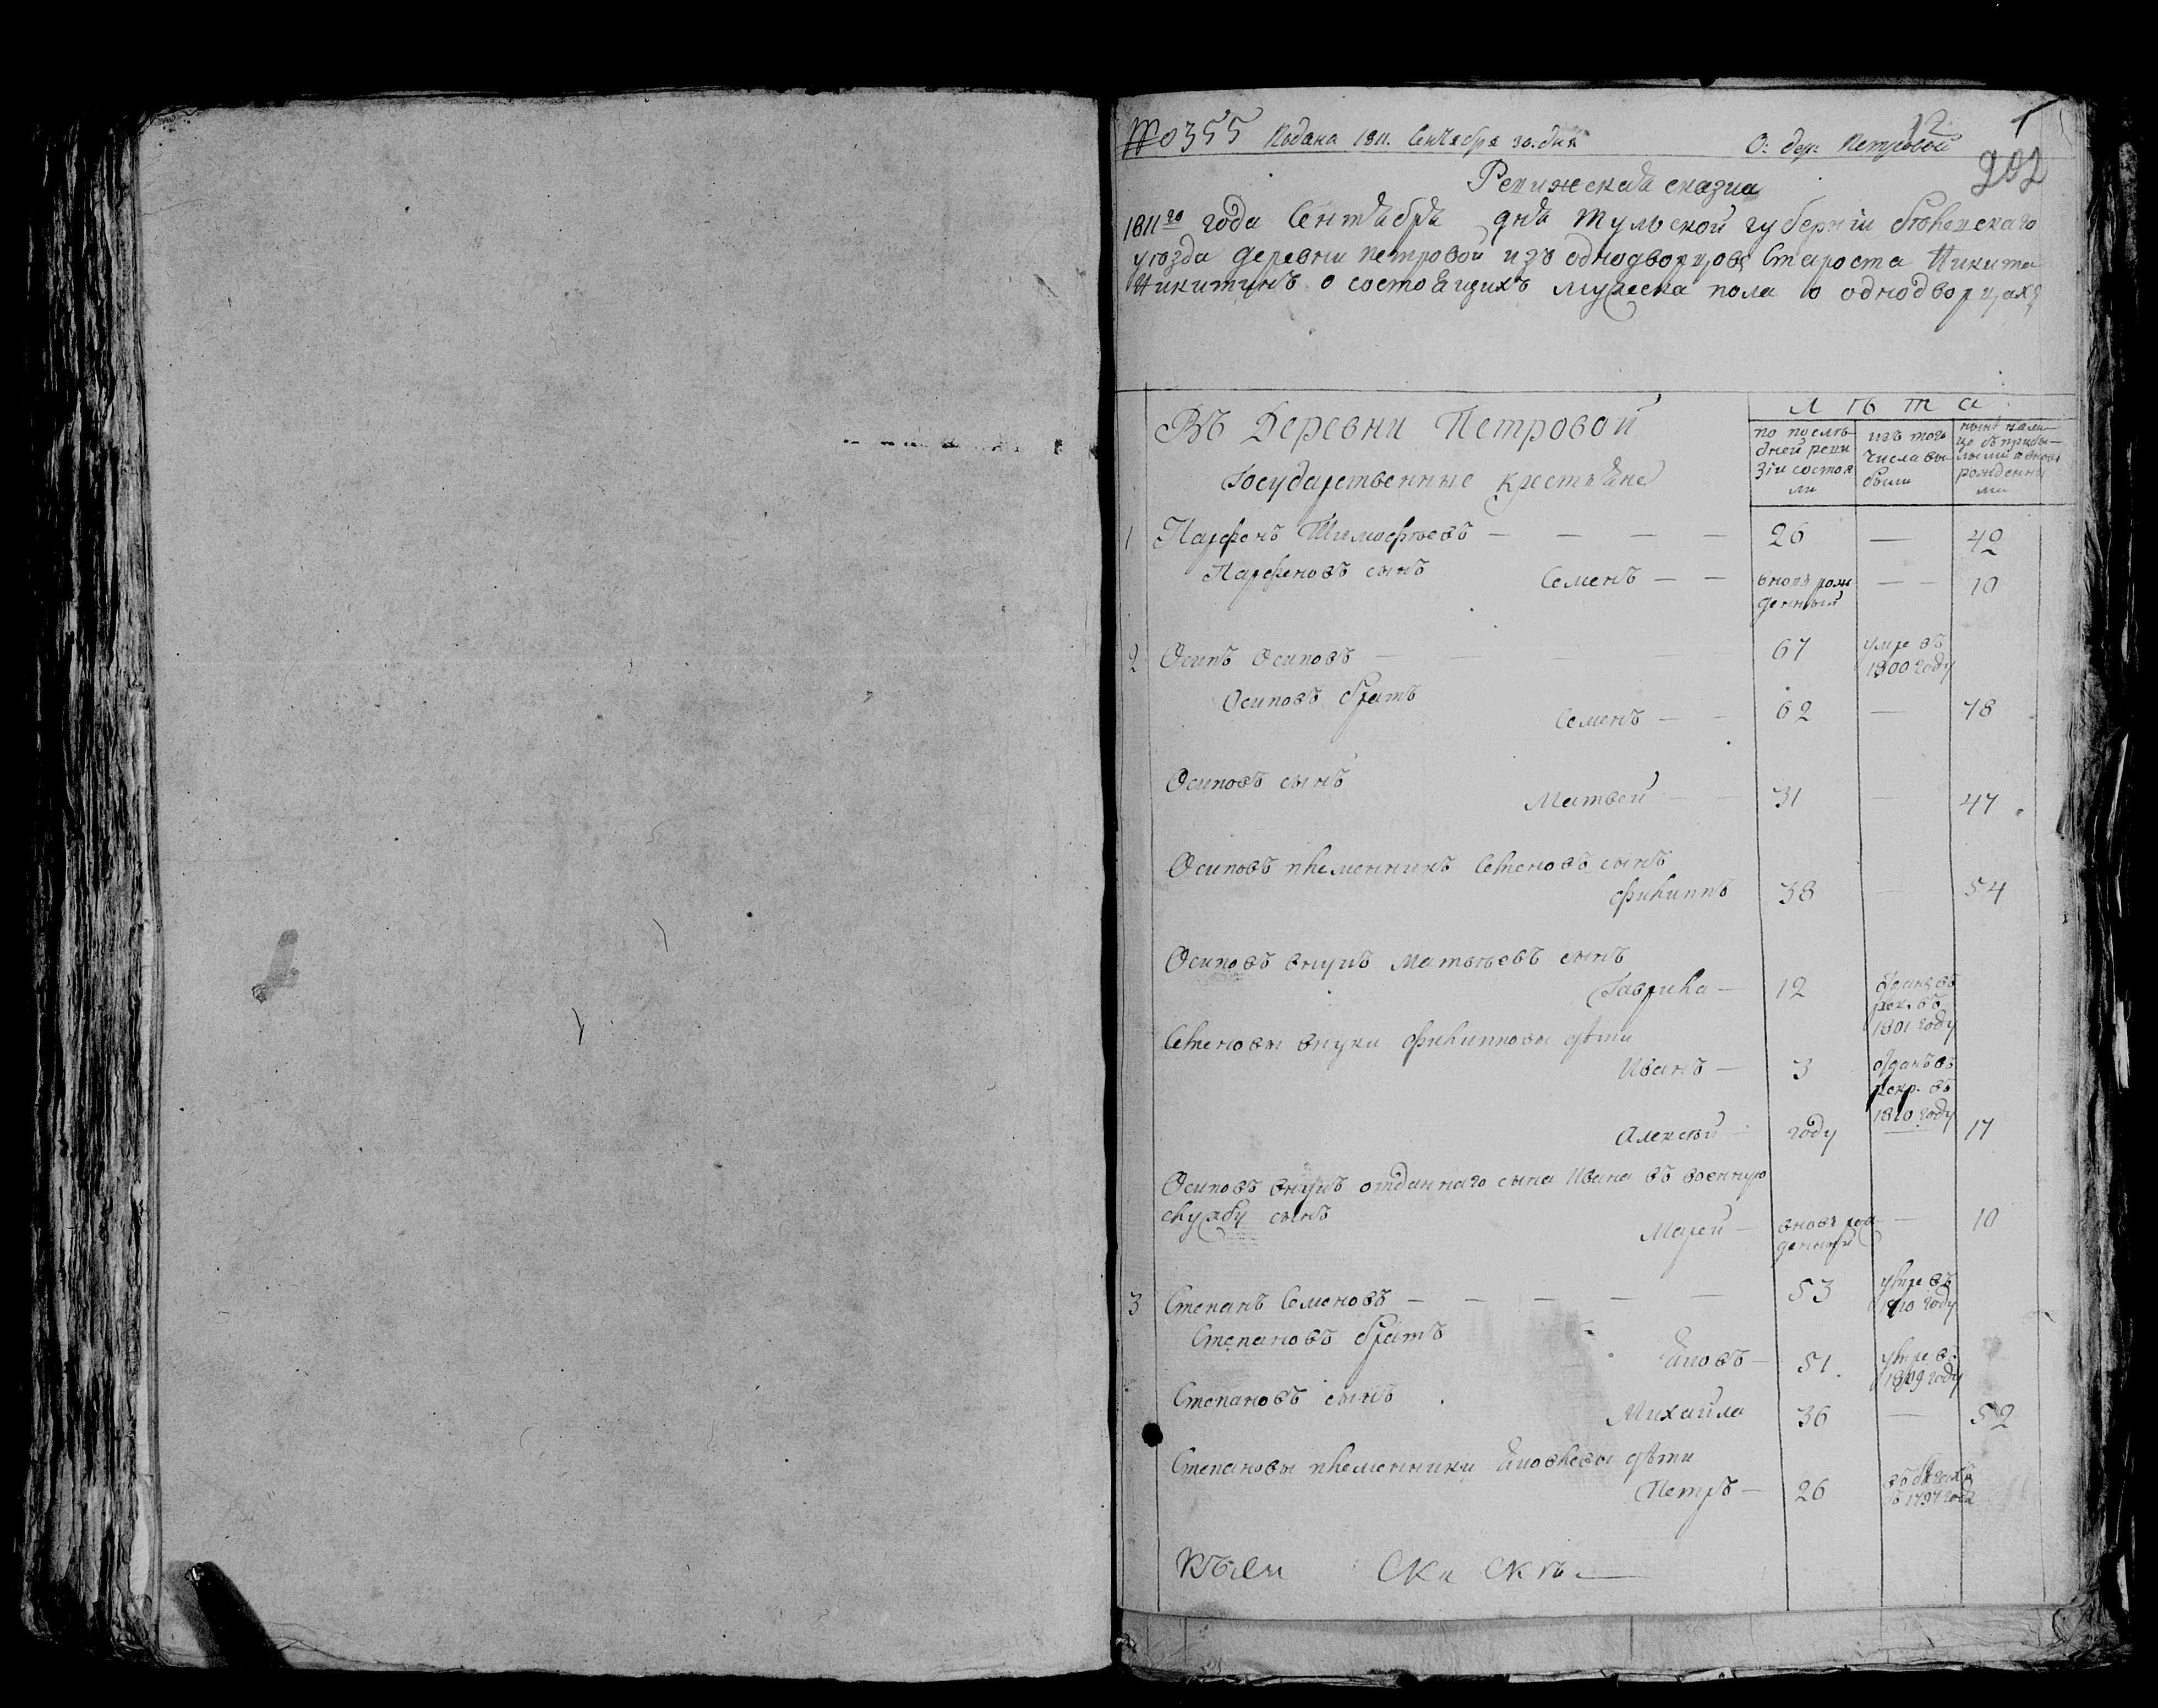 № 355 Подана 1811. Сентября 30. дня О: дер: Петровой
12
1
202
Ревижская сказка
1811го года Сентября дня Тульской губернии Бѣлевскаго
уезда деревни Петровой изъ однодворцовъ Староста Никита
Никитинъ о состоящихъ мужеска пола о однодворцахъ
Въ Деревни Петровой
Государственные крестьяне
лѣта
по послѣ-
дней реви
зіи состоя
ли
изъ того
числа вы
были
нынѣ нали-
цо съ прибы-
лыми и вновь
рожденны
ми
1 Парфенъ Тимофѣевъ — — — — 26 — 42
Парфеновъ сынъ
Семенъ — — вновь рож
денный — — 10
2 Осипъ Осиповъ — 67 умре въ
1800 году
Осиповъ братъ
Семенъ — — 62 — 78
Осиповъ сынъ
Матвей — — 31 — 47
Осиповъ племенникъ Семеновъ сынъ
Филиппъ 38 — 54
Осиповъ внукъ Матвѣевъ сынъ
Гаврила — 12 отданъ въ
рек. въ
1801 году
Семеновы внуки Филипповы дѣти
Иванъ — 3 отданъ въ
рекр. въ
1810 году
Алексѣй — году — 17
Осиповъ внукъ отданнаго сына Ивана въ военную
службу сынъ
Марей — вновь рож
денный — 10
3 Степанъ Семеновъ — — — — — 53 умре въ
1810 году
Степановъ братъ
Яковъ — 51. умре въ
1809 году
Степановъ сынъ
Михайла 36 — 52
Степановы племенники Яковлевы дѣти
Петръ — 26 въ бѣгахъ
съ 1797 года